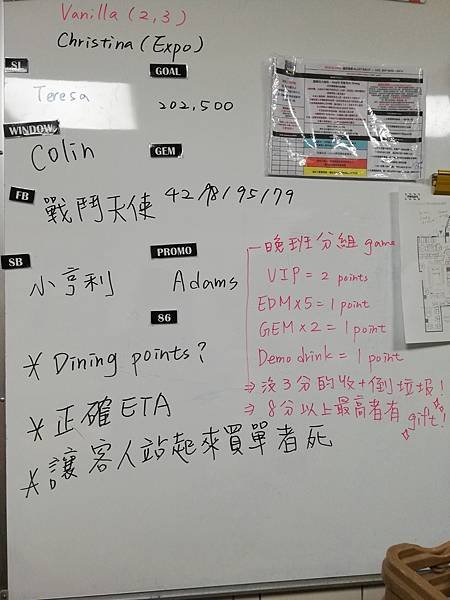 Vanilla (2,3)
Christina (Expo)
SL
Teresa
GOAL
202,500
WINDOW
Colin
GEM
FB
戰鬥天使 42/98/95/79
SB
小亨利
PROMO
Adams
86
晚班分組 game
VIP = 2 points
EDM×5 = 1 point
GEM × 2 = 1 point
Demo drink = 1 point
⇒ 沒3分的收+倒垃圾!
⇒ 8分以上最高者有 gift!
* Dining points?
* 正確 ETA
* 讓客人站起來買單者死